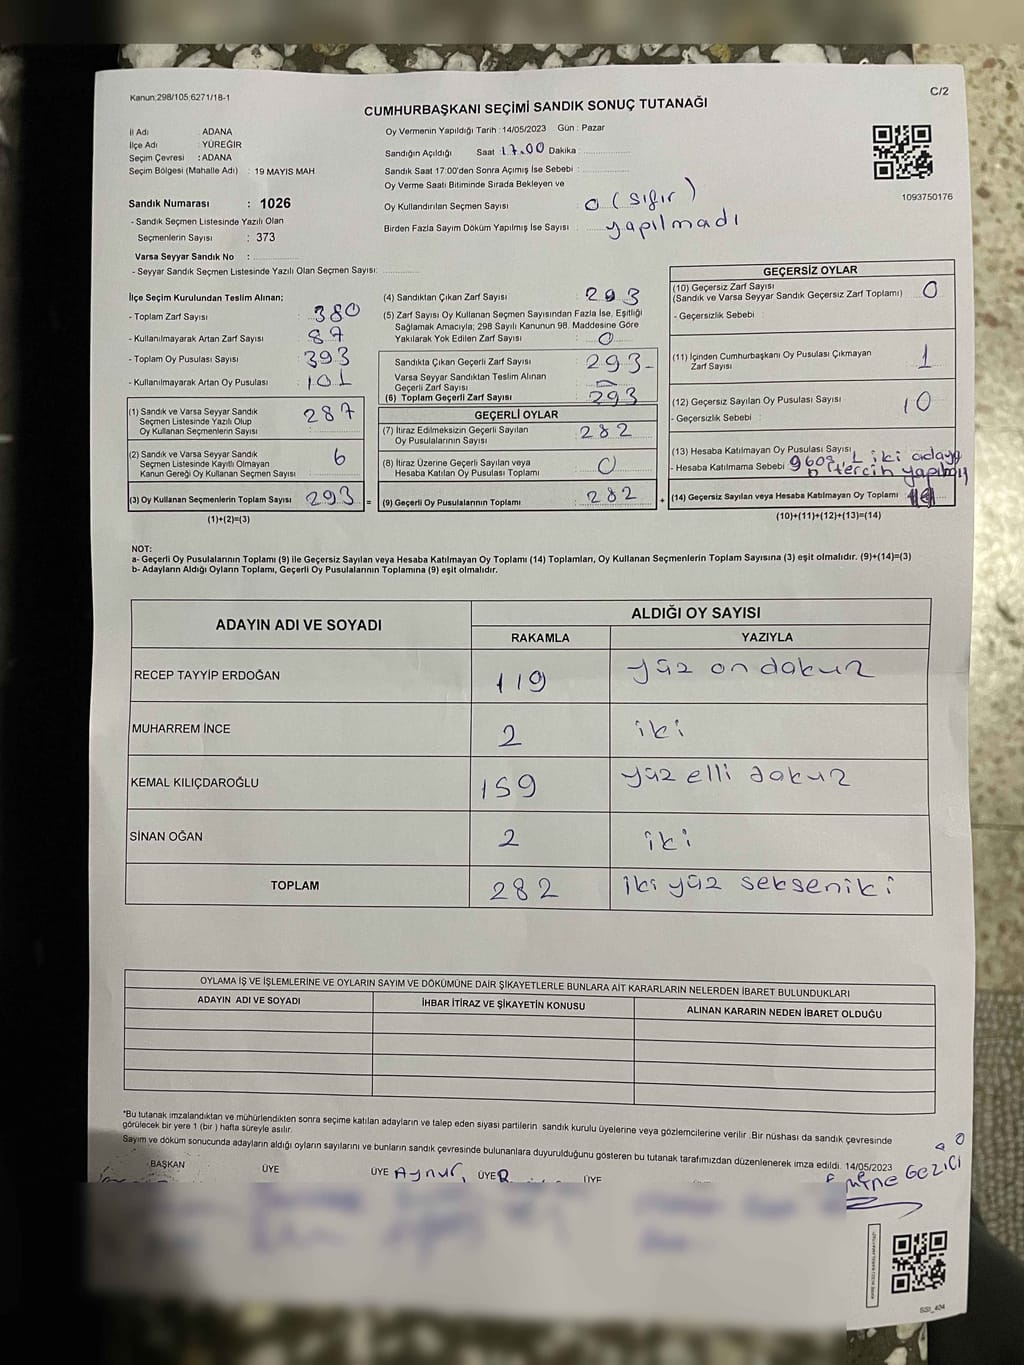 Kanun;298/105;6271/18-1
C/2
CUMHURBAŞKANI SEÇİMİ SANDIK SONUÇ TUTANAĞI
İl Adı : ADANA
İlçe Adı : YÜREĞİR
Seçim Çevresi : ADANA
Seçim Bölgesi (Mahalle Adı) : 19 MAYIS MAH
Sandık Numarası : 1026
- Sandık Seçmen Listesinde Yazılı Olan
Seçmenlerin Sayısı : 373
Varsa Seyyar Sandık No :
- Seyyar Sandık Seçmen Listesinde Yazılı Olan Seçmen Sayısı:
Oy Vermenin Yapıldığı Tarih : 14/05/2023 Gün : Pazar
Sandığın Açıldığı Saat 17.00 Dakika
Sandık Saat 17:00'den Sonra Açımış İse Sebebi :
Oy Verme Saati Bitiminde Sırada Bekleyen ve
Oy Kullandırılan Seçmen Sayısı : 0 (sıfır)
Birden Fazla Sayım Döküm Yapılmış İse Sayısı : yapılmadı
1093750176
İlçe Seçim Kurulundan Teslim Alınan;
- Toplam Zarf Sayısı : 380
- Kullanılmayarak Artan Zarf Sayısı : 87
- Toplam Oy Pusulası Sayısı : 393
- Kullanılmayarak Artan Oy Pusulası : 101
(1) Sandık ve Varsa Seyyar Sandık
Seçmen Listesinde Yazılı Olup
Oy Kullanan Seçmenlerin Sayısı : 287
(2) Sandık ve Varsa Seyyar Sandık
Seçmen Listesinde Kayıtlı Olmayan
Kanun Gereği Oy Kullanan Seçmen Sayısı : 6
(3) Oy Kullanan Seçmenlerin Toplam Sayısı : 293 =
(1)+(2)=(3)
(4) Sandıktan Çıkan Zarf Sayısı : 293
(5) Zarf Sayısı Oy Kullanan Seçmen Sayısından Fazla İse, Eşitliği
Sağlamak Amacıyla; 298 Sayılı Kanunun 98. Maddesine Göre
Yakılarak Yok Edilen Zarf Sayısı : 0
Sandıkta Çıkan Geçerli Zarf Sayısı : 293
Varsa Seyyar Sandıktan Teslim Alınan
Geçerli Zarf Sayısı :
(6) Toplam Geçerli Zarf Sayısı : 293
GEÇERLİ OYLAR
(7) İtiraz Edilmeksizin Geçerli Sayılan
Oy Pusulalarının Sayısı : 282
(8) İtiraz Üzerine Geçerli Sayılan veya
Hesaba Katılan Oy Pusulası Toplamı : 0
(9) Geçerli Oy Pusulalarının Toplamı : 282 +
GEÇERSİZ OYLAR
(10) Geçersiz Zarf Sayısı : 0
(Sandık ve Varsa Seyyar Sandık Geçersiz Zarf Toplamı)
- Geçersizlik Sebebi :
(11) İçinden Cumhurbaşkanı Oy Pusulası Çıkmayan
Zarf Sayısı : 1
(12) Geçersiz Sayılan Oy Pusulası Sayısı : 10
- Geçersizlik Sebebi :
(13) Hesaba Katılmayan Oy Pusulası Sayısı
- Hesaba Katılmama Sebebi iki adaya
tercih yapılmış
(14) Geçersiz Sayılan veya Hesaba Katılmayan Oy Toplamı
(10)+(11)+(12)+(13)=(14)
NOT:
a- Geçerli Oy Pusulalarının Toplamı (9) ile Geçersiz Sayılan veya Hesaba Katılmayan Oy Toplamı (14) Toplamları, Oy Kullanan Seçmenlerin Toplam Sayısına (3) eşit olmalıdır. (9)+(14)=(3)
b- Adayların Aldığı Oyların Toplamı, Geçerli Oy Pusulalarının Toplamına (9) eşit olmalıdır.
ADAYIN ADI VE SOYADI
ALDIĞI OY SAYISI
RAKAMLA YAZIYLA
RECEP TAYYİP ERDOĞAN 119 yüz on dokuz
MUHARREM İNCE 2 iki
KEMAL KILIÇDAROĞLU 159 yüz elli dokuz
SİNAN OĞAN 2 iki
TOPLAM 282 iki yüz sekseniki
OYLAMA İŞ VE İŞLEMLERİNE VE OYLARIN SAYIM VE DÖKÜMÜNE DAİR ŞİKAYETLERLE BUNLARA AİT KARARLARIN NELERDEN İBARET BULUNDUKLARI
ADAYIN ADI VE SOYADI İHBAR İTİRAZ VE ŞİKAYETİN KONUSU ALINAN KARARIN NEDEN İBARET OLDUĞU
*Bu tutanak imzalandıktan ve mühürlendikten sonra seçime katılan adayların ve talep eden siyasi partilerin sandık kurulu üyelerine veya gözlemcilerine verilir. Bir nüshası da sandık çevresinde
görülecek bir yere 1 (bir) hafta süreyle asılır.
Sayım ve döküm sonucunda adayların aldığı oyların sayılarını ve bunların sandık çevresinde bulunanlara duyurulduğunu gösteren bu tutanak tarafımızdan düzenlenerek imza edildi. 14/05/2023
BAŞKAN ÜYE ÜYE Aynur ÜYE ÜYE
GEZİCİ
SSI_404